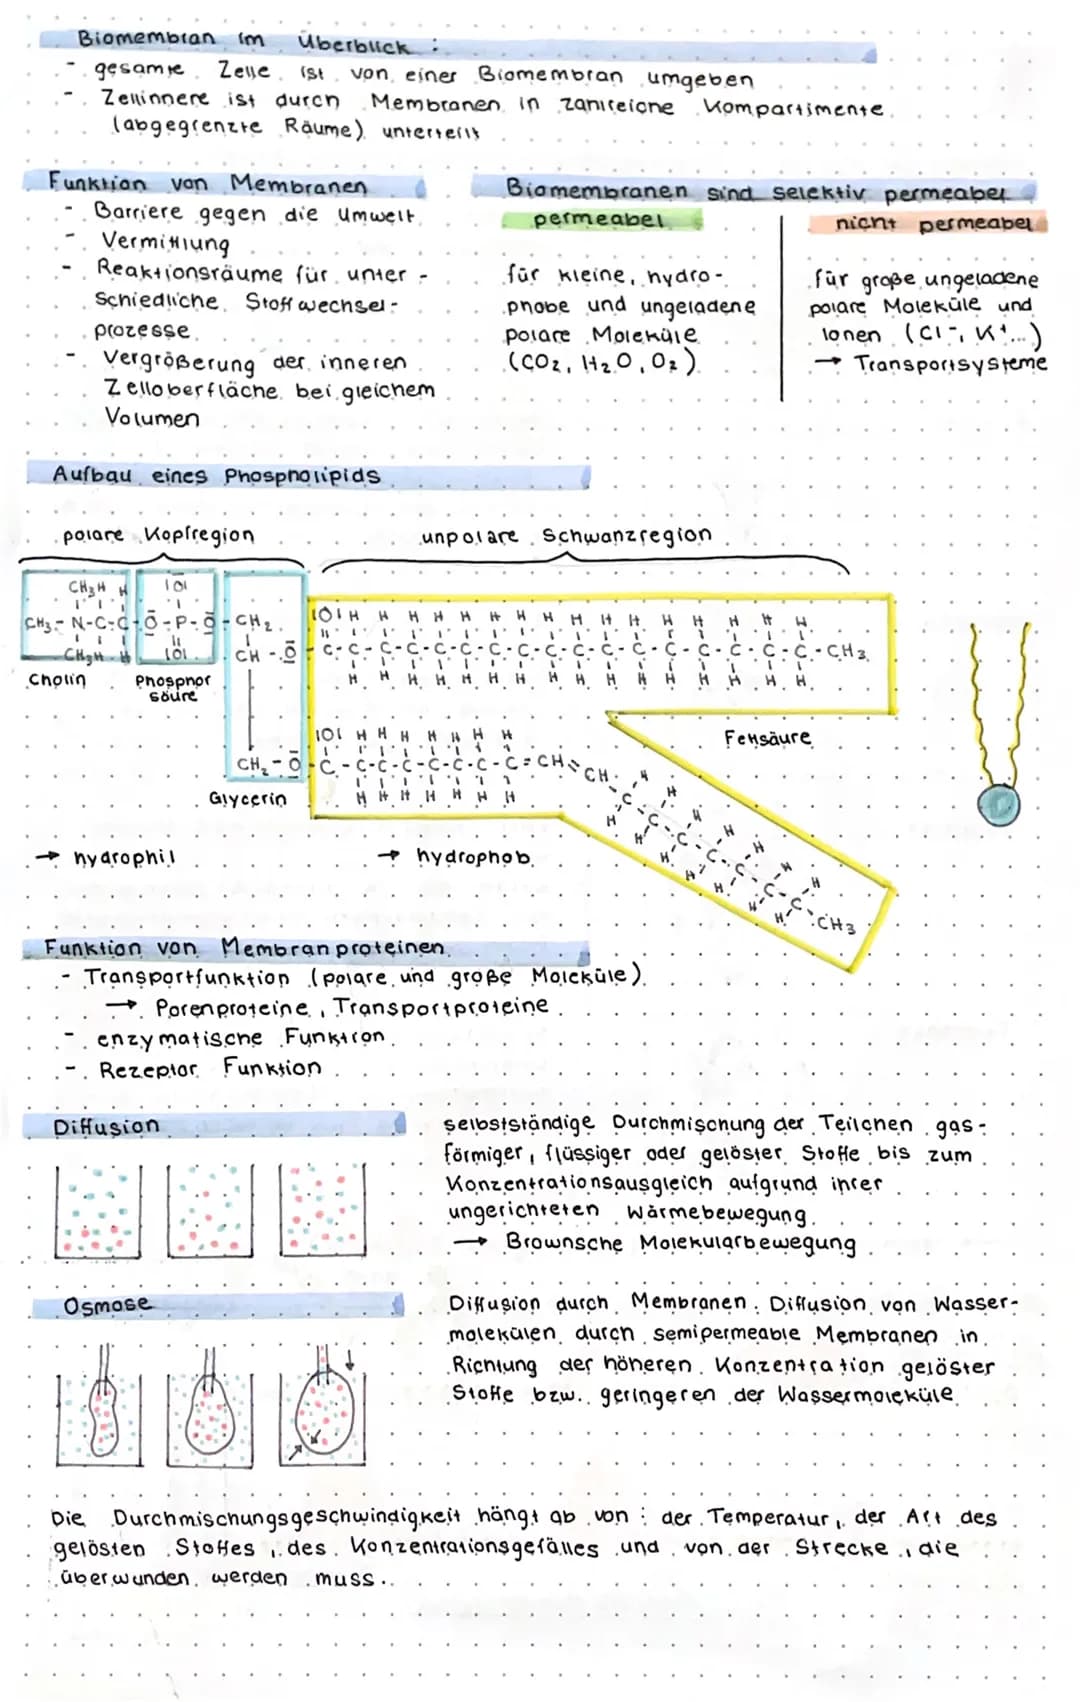 Biomembran im Überblick :
- gesamte Zelle ist von einer Biomembran umgeben
- Zellinnere ist durch Membranen in zahlreiche Kompartimente
(abgegrenzte Räume) unterteilt
Funktion von Membranen
- Barriere gegen die Umwelt
- Vermittlung
- Reaktionsräume für unter-
schiedliche Stoffwechsel-
prozesse
- Vergrößerung der inneren
Zelloberfläche bei gleichem
Volumen
Biomembranen sind selektiv permeabel
permeabel
für kleine, hydro-
phobe und ungeladene
polare Moleküle
(CO2, H2O, O2)
nicht permeabel
für große ungeladene
polare Moleküle und
Ionen (Cl-, K+...)
→ Transportsysteme
Aufbau eines Phospholipids
polare Kopfregion
unpolare Schwanzregion
CH3 H H
CH3 - N-C-C-O-P-O-CH2
CH3 H H
|O|
|O|
CH - O
|O| H H H H H H H H H H H H H H H
C-C-C-C-C-C-C-C-C-C-C-C-C-C-C-C-CH3
H H H H H H H H H H H H H H H
Cholin
Phosphor
säure
|O| H H H H H H H
CH2-O-C-C-C-C-C-C-C-C=CH=CH
H H H H H H H
Fettsäure
H H H H H H H
C-C-C-C-C-C-C-CH3
H H H H H H H
Glycerin
→ hydrophil
→ hydrophob
Funktion von Membranproteinen
- Transportfunktion (polare und große Moleküle)
→ Porenproteine, Transportproteine
- enzymatische Funktion
- Rezeptor Funktion
Diffusion
selbstständige Durchmischung der Teilchen gas-
förmiger, flüssiger oder gelöster Stoffe bis zum
Konzentrationsausgleich aufgrund ihrer
ungerichteten Wärmebewegung
→ Brownsche Molekularbewegung
Osmose
Diffusion durch Membranen. Diffusion von Wasser-
molekülen durch semipermeable Membranen in
Richtung der höheren Konzentration gelöster
Stoffe bzw. geringeren der Wassermoleküle
Die Durchmischungsgeschwindigkeit hängt ab von : der Temperatur, der Art des
gelösten Stoffes, des Konzentrationsgefälles und von der Strecke, die
überwunden werden muss.